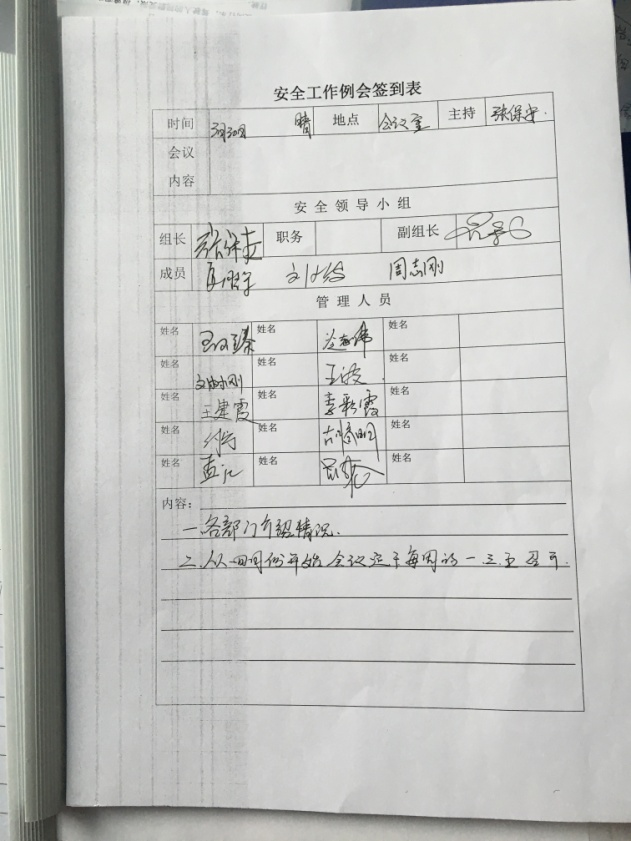 安全工作例会签到表
时间 3月30日 晴 地点 会议室 主持 张保安.
会议
内容
安全领导小组
组长 职务 副组长
成员 周志刚
管理人员
姓名 姓名 姓名
姓名 姓名 王波. 姓名
姓名 王建霞 姓名 李彩霞 姓名
姓名 姓名 姓名
姓名 孟江 姓名 姓名
内容：
一.各部门介绍情况.
二.从四月份开始会议定于每周的一.三.五召开.